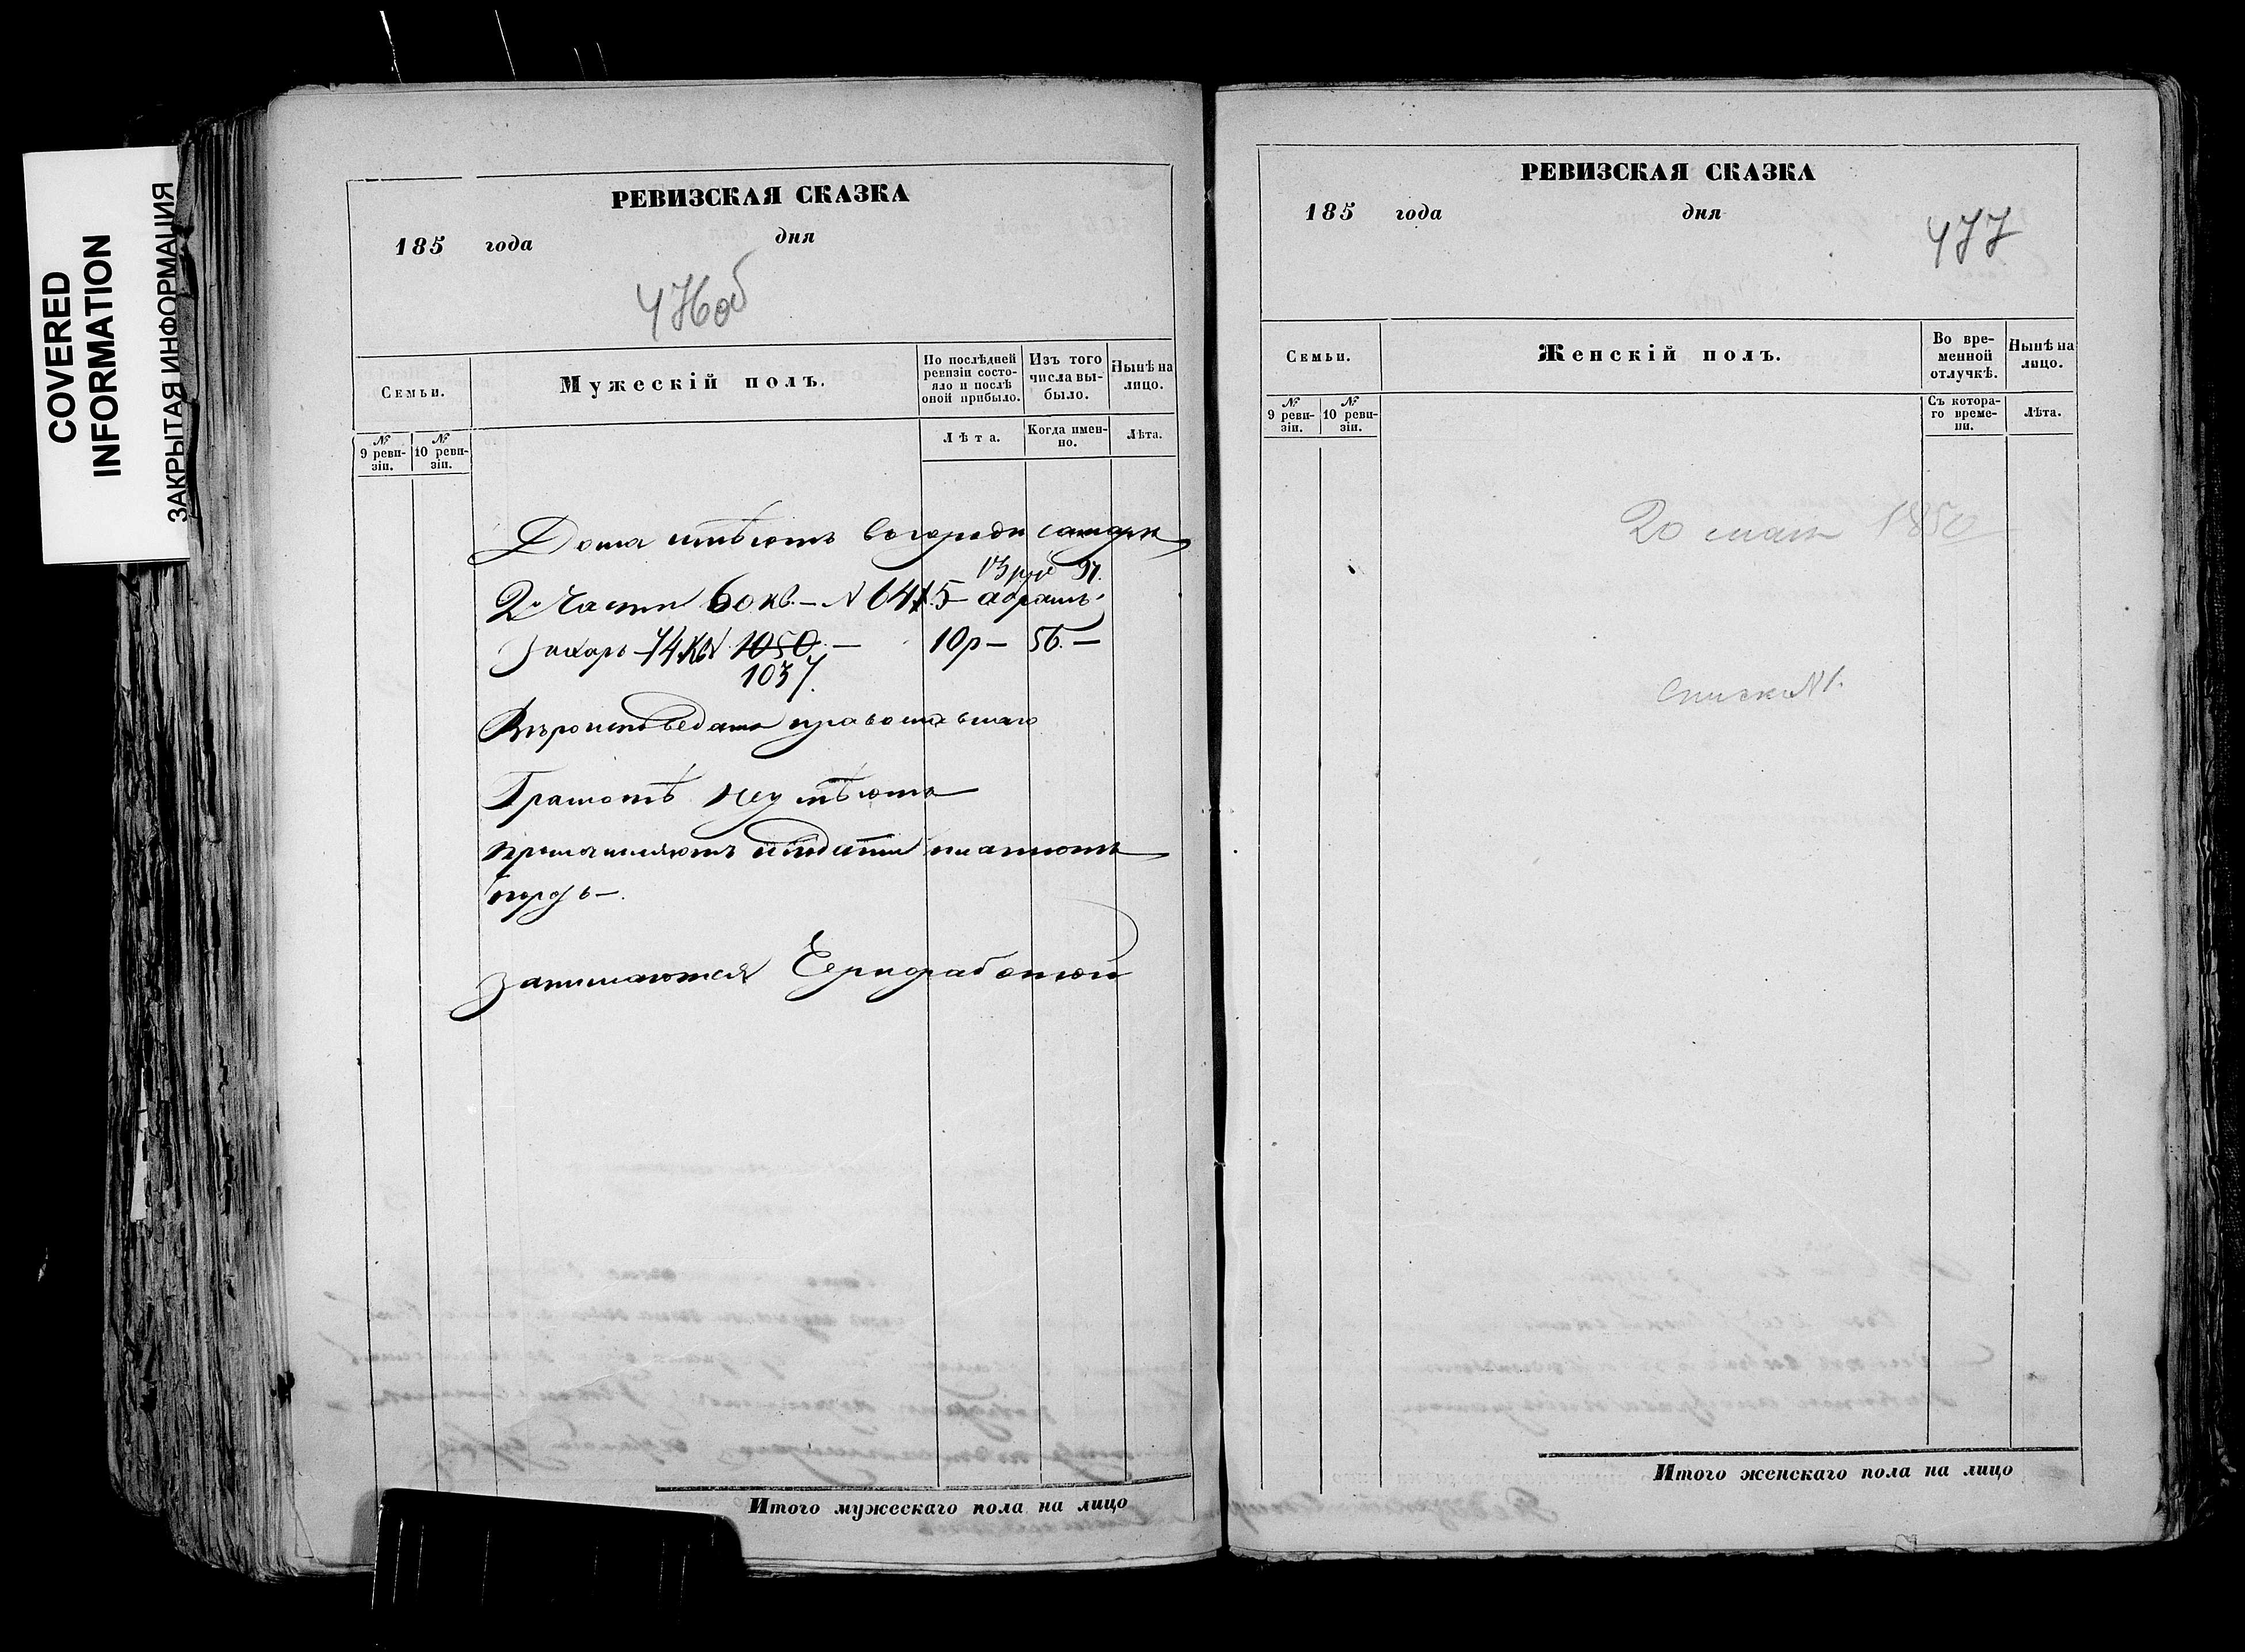 COVERED
INFORMATION
ЗАКРЫТАЯ ИНФОРМАЦИЯ
РЕВИЗСКАЯ СКАЗКА
185 года дня
476об
Семьи.
Мужескій полъ.
По послѣдней ревизіи состояло и послѣ оной прибыло.
Изъ того числа выбыло.
Нынѣ на лицо.
№ 9 ревизіи.
№ 10 ревизіи.
Лѣта.
Когда именно.
Лѣта.
Дома имѣютъ въ городѣ самарѣ
13 ру 97.
2й Части 60 кв. – N 6415 – абрамъ
Захаръ – 74 кв N 1050. – 10р – 56. –
1037.
Вѣроисповеданія православнаго
Грамотѣ неумѣютъ
промышляютъ и подати платютъ
порозь –.
занимаются Черноработой
РЕВИЗСКАЯ СКАЗКА
185 года дня
477
Семьи.
Женскій полъ.
Во временной отлучкѣ.
Нынѣ на лицо.
№ 9 ревизіи.
№ 10 ревизіи.
Съ котораго времени.
Лѣта.
20 мая 1850
Списки N 1.
Итого мужескаго пола на лицо
Итого женскаго пола на лицо